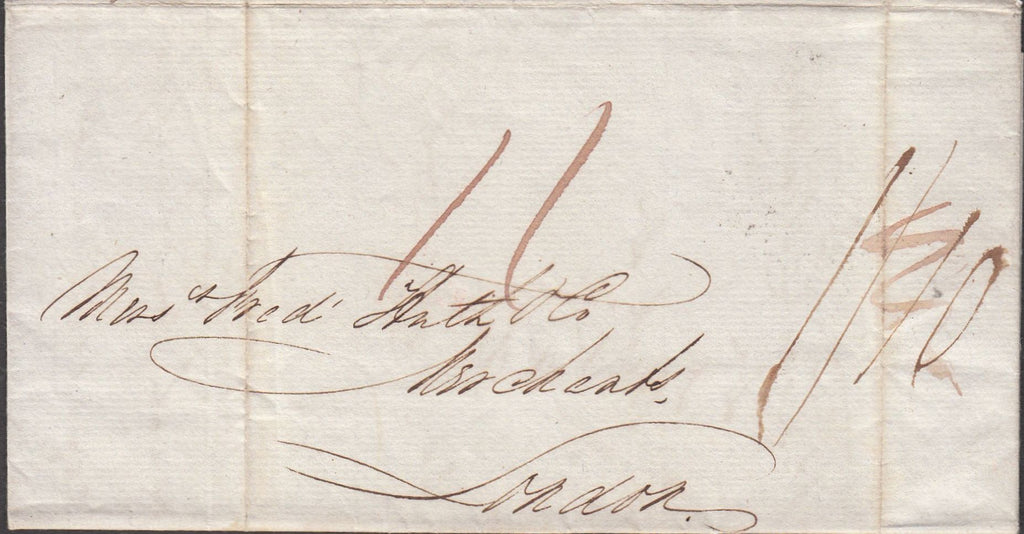 11
1/10
Messrs Fred Huth & Co
Merchants,
London.